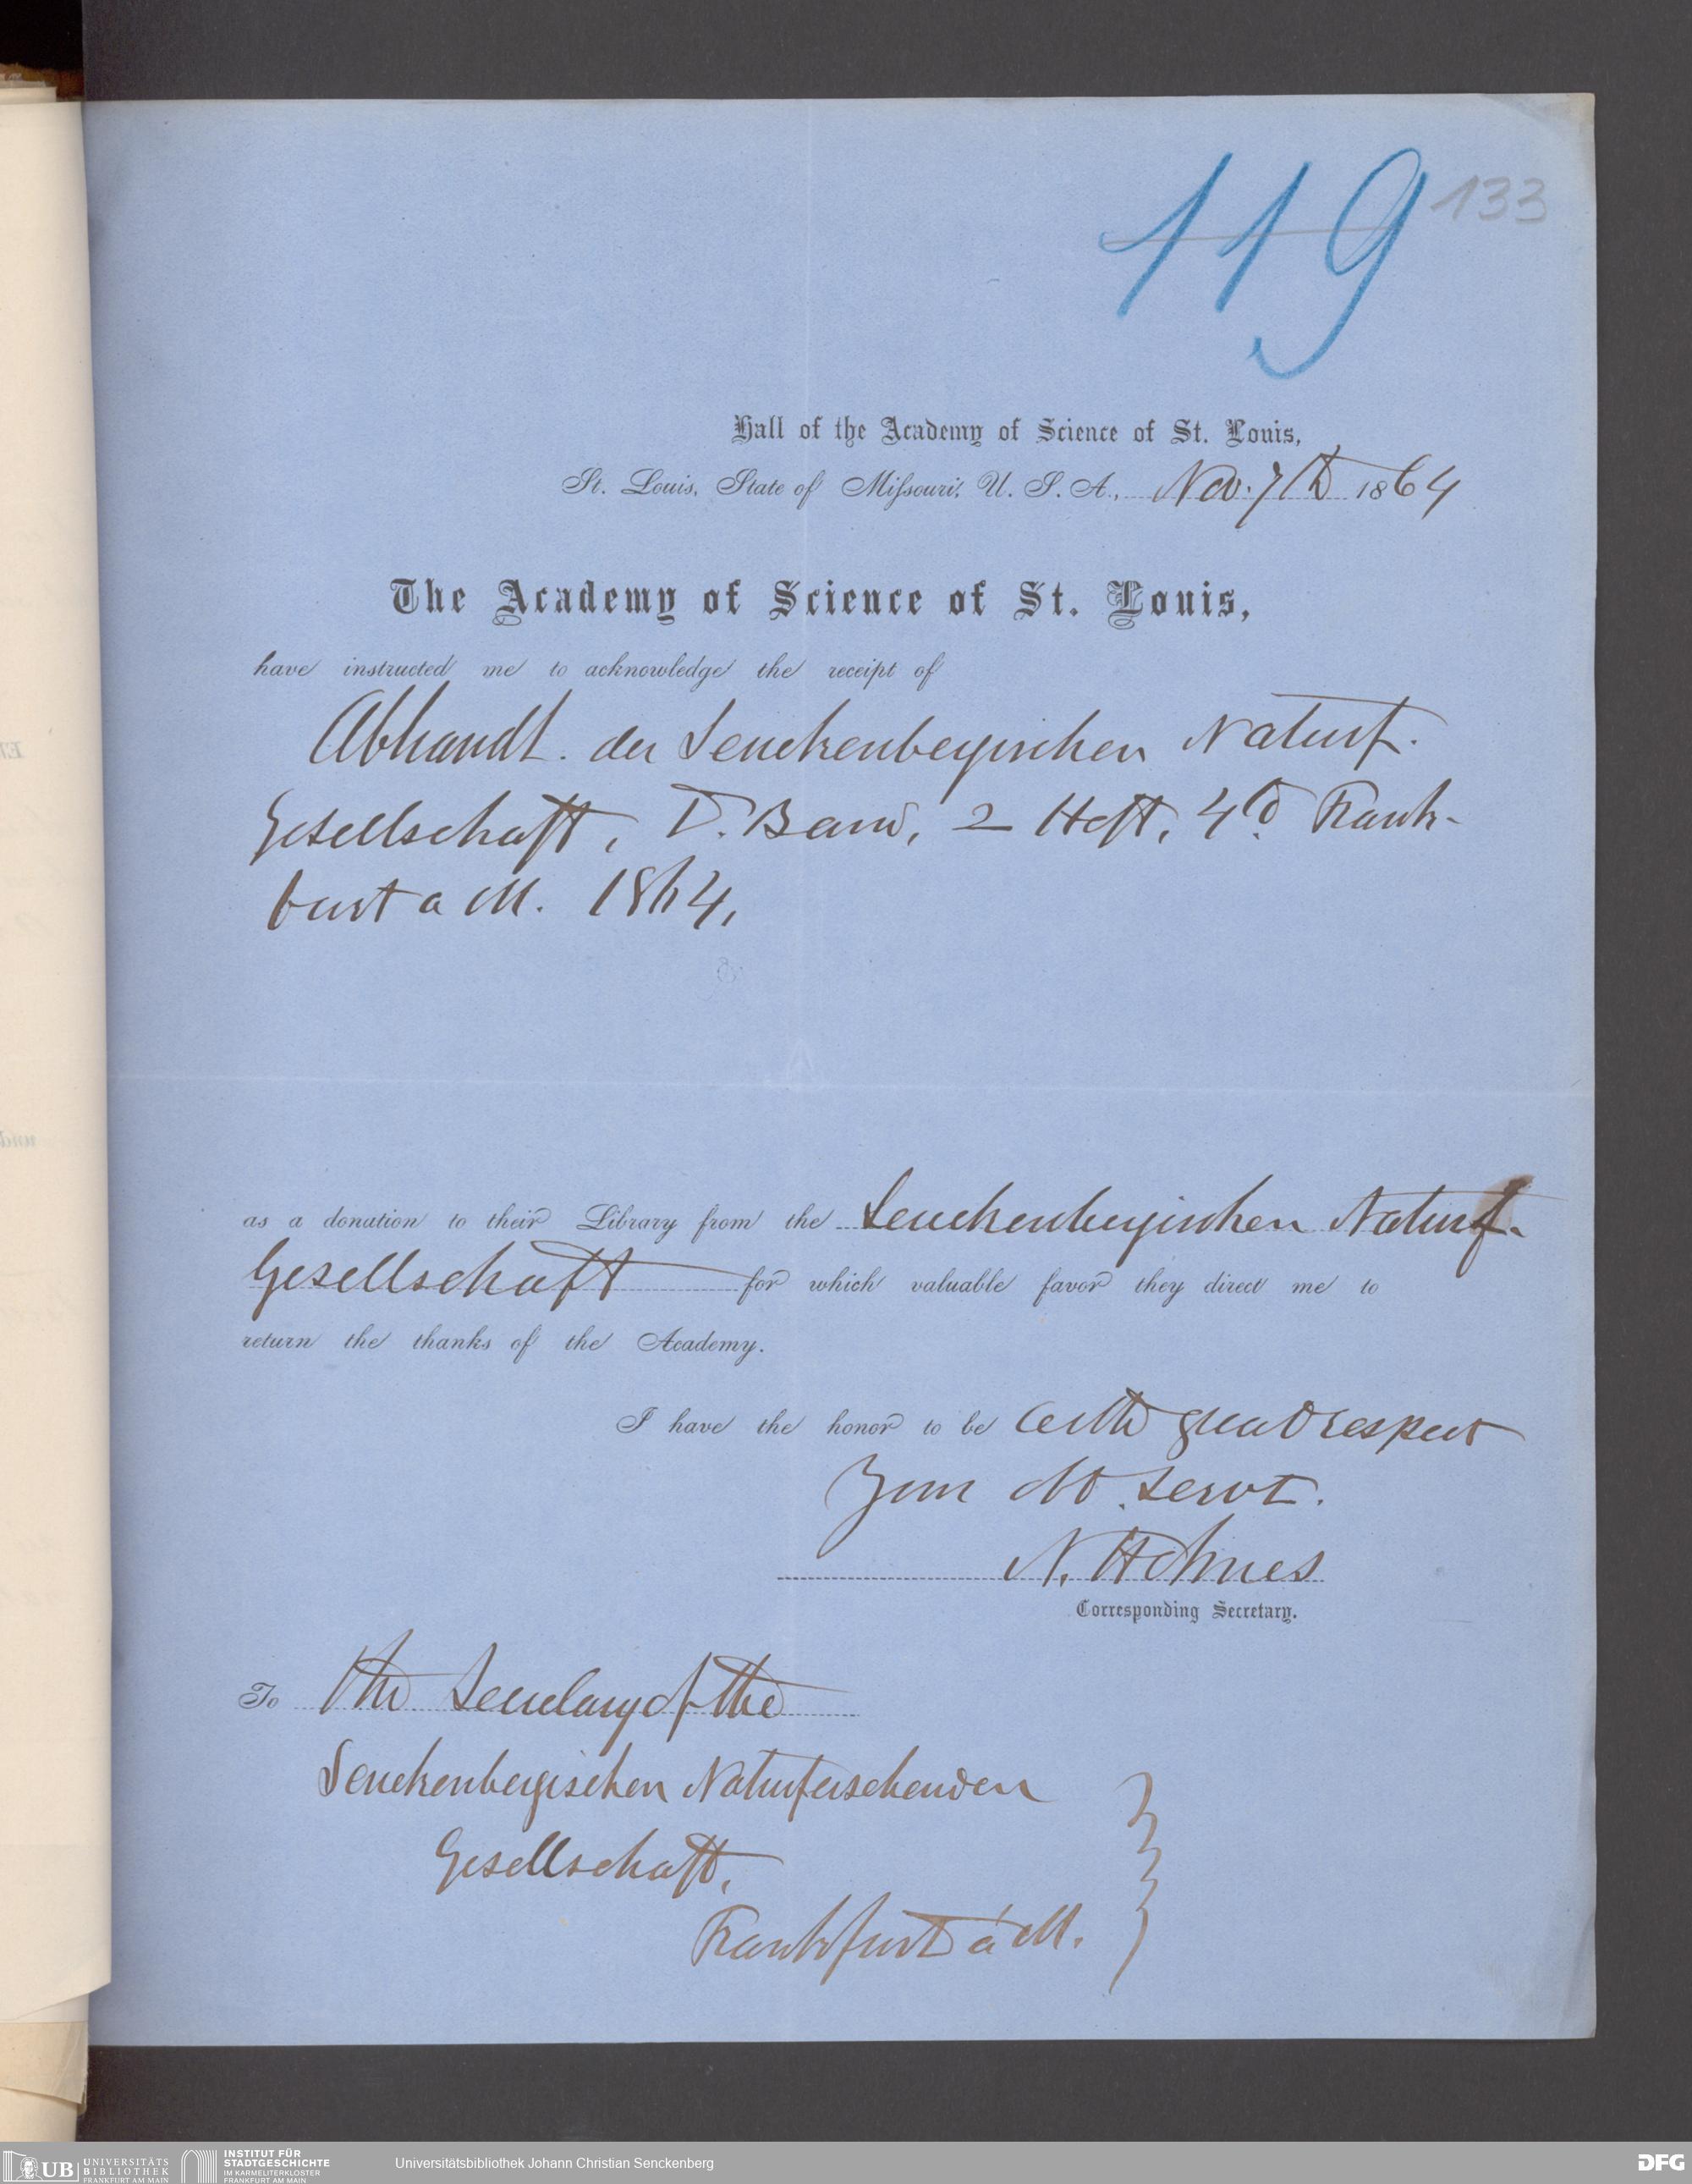 119 133
Hall of the Academy of Science of St. Louis,
St. Louis, State of Missouri, U. S. A., Nov. 7th 1864
The Academy of Science of St. Louis,
have instructed me to acknowledge the receipt of
Abhandl. der Senckenbergischen Naturf.
Gesellschaft, V. Band, 2 Heft, 4to. Frank-
furt a M. 1864,
as a donation to their Library from the Senckenbergischen Naturf.
Gesellschaft for which valuable favor they direct me to
return the thanks of the Academy.
I have the honor to be with great respect
Your Ob. servt.
N. Holmes
Corresponding Secretary.
To the Secretary of the
Senckenbergischen Naturforschenden
Gesellschaft,
Frankfurt a M.
UB UNIVERSITÄTS BIBLIOTHEK FRANKFURT AM MAIN
INSTITUT FÜR STADTGESCHICHTE IM KARMELITERKLOSTER FRANKFURT AM MAIN
Universitätsbibliothek Johann Christian Senckenberg
DFG